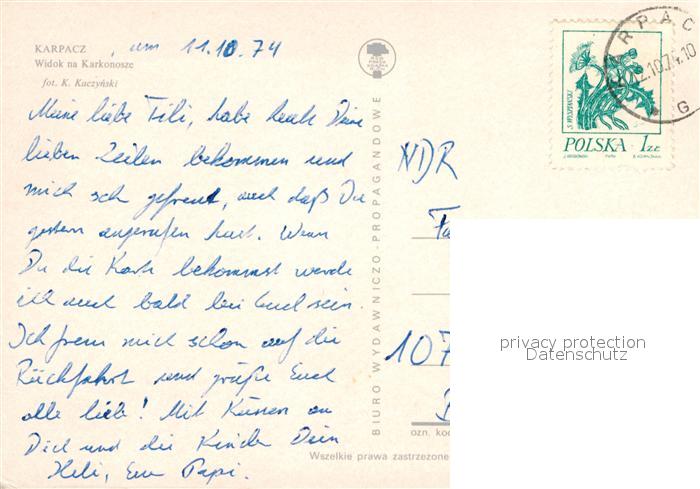 KARPACZ , am 11.10.74
Widok na Karkonosze
fot. K. Kaczyński
Meine liebe Tili, habe heute Deine
lieben Zeilen bekommen und
mich sehr gefreut, auch daß Du
gestern angerufen hast. Wenn
Du die Karte bekommst werde
ich auch bald bei Euch sein.
Ich freue mich schon auf die
Rückfahrt und grüße Euch
alle liebe! Mit Küssen an
Dich und die Kinder Dein
Heli, Euer Papi.
BIURO WYDAWNICZO-PROPAGANDOWE
RPAC
12.10.74.10
G
S. WYSPIAŃSKI
POLSKA 1 ZŁ
NDR
107
ozn. kod
Wszelkie prawa zastrzeżone
privacy protection
Datenschutz